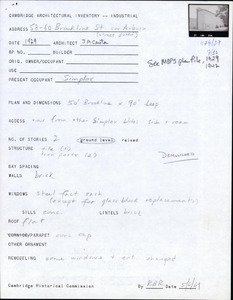 CAMBRIDGE ARCHITECTURAL INVENTORY -- INDUSTRIAL
ADDRESS 58-60 Brookline St
DATE 1929 ARCHITECT
BP. NO. BUILDER
ORIG. OWNER/OCCUPANT
See MDPS plan file, 1629
1842
PRESENT OCCUPANT Simplex
PLAN AND DIMENSIONS 50' Brookline x 90' deep
ACCESS now from other Simplex bldgs
NO. OF STORIES 2 ground level raised
STRUCTURE
DEMOLISHED
BAY SPACING
WALLS brick
WINDOWS steel fact. sash
(except for glass block replacements)
SILLS conc LINTELS brick
ROOF flat
CORNICE/PARAPET conc cap
OTHER ORNAMENT
REMODELING some windows & ent. changed
Cambridge Historical Commission By Date